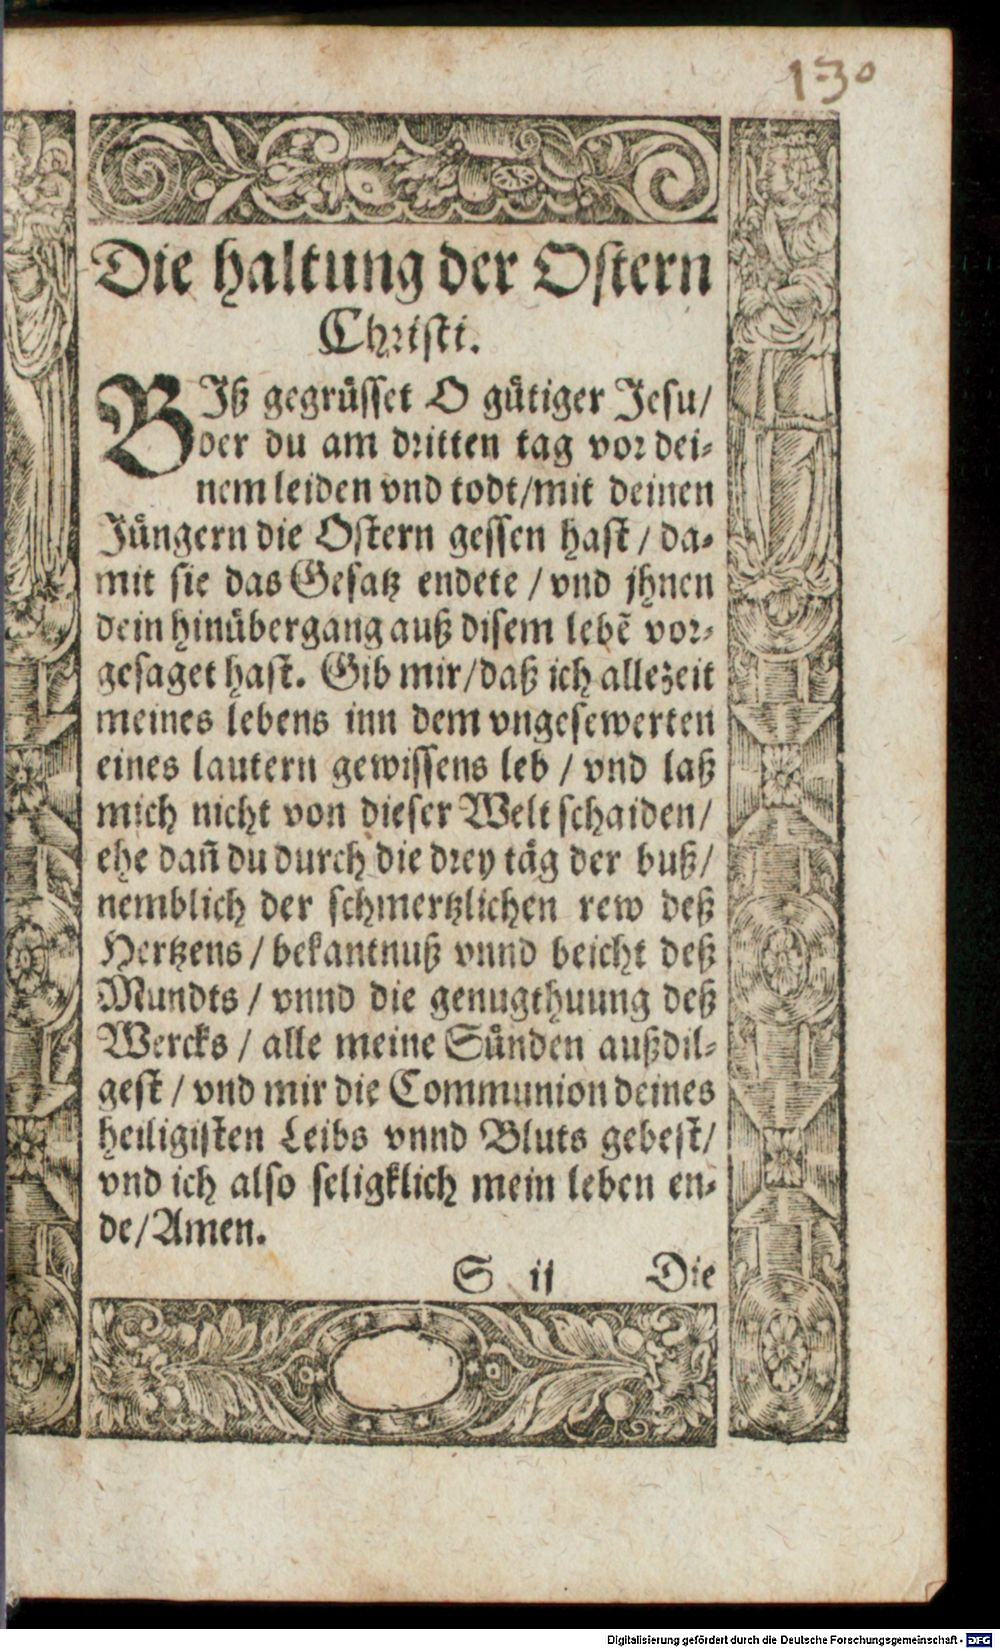 130
Die haltung der Ostern
Christi.
BIß gegrüsset O gütiger Jesu/
der du am dritten tag vor dei-
nem leiden vnd todt/mit deinen
Jüngern die Ostern gessen hast/ da-
mit sie das Gesatz endete / vnd jhnen
dein hinübergang auß disem lebẽ vor-
gesaget hast. Gib mir/daß ich allezeit
meines lebens inn dem vngesewerten
eines lautern gewissens leb / vnd laß
mich nicht von dieser Welt schaiden/
ehe dañ du durch die drey täg der buß/
nemblich der schmertzlichen rew deß
Hertzens / bekantnuß vnnd beicht deß
Mundts / vnnd die genugthuung deß
Wercks / alle meine Sünden außdil-
gest / vnd mir die Communion deines
heiligisten Leibs vnnd Bluts gebest/
vnd ich also seligklich mein leben en-
de/Amen.
S ij Die
Digitalisierung gefördert durch die Deutsche Forschungsgemeinschaft - DFG